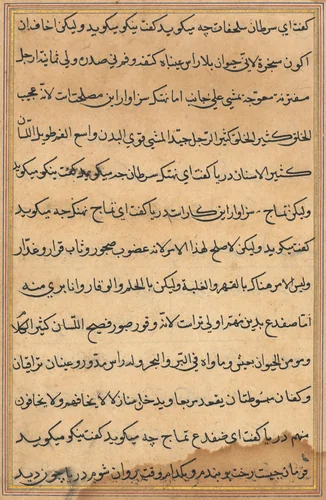 گفت ای سرطان سلحفات چه میگوید گفت نیکو میگوید ولیکن اخاف ان
اکون سخرة لانی حیوان بلا راس عیناه کتفه و فمی صدری ولی ثمانیة ارجل
مقترنة معوجة مشیی علی جانب اما نهنگ سزاوار این مصلحت است لانه عجیب
الخلق کثیر الخلق کثیر الرجل جید المشی قوی البدن واسع الفم طویل اللسان
کثیر الاسنان دریا گفت ای نهنگ سرطان چه میگوید گفت نیکو میگوید
ولیکن تمساح سزاوار این کار است دریا گفت ای تمساح نهنگ چه میگوید
گفت میگوید ولیکن لا صلح لهذا الامر لانه غضوب ضجور وثاب فرار وغدار
ولیس الامر هناک بالقهر والغلبة ولیکن بالحلم والوقار وانا بری منه
اما ضفدع بدین مهتر اولی تر است لانه وقور صبور فصیح اللسان کثیر الکلام
وهو من الحیوان یعیش وماواه فی البر والبحر وله راس مدور وعینان براقتان
وکفان مبسوطتان یقعد مربعا ویدخل منازلا لا یخافهم ولا یخافون
منهم دریا گفت ای ضفدع تمساح چه میگوید گفت نیکو میگوید
فرمان چیست رخت بربندم و بکدام وقت روان شوم دریا چون دید